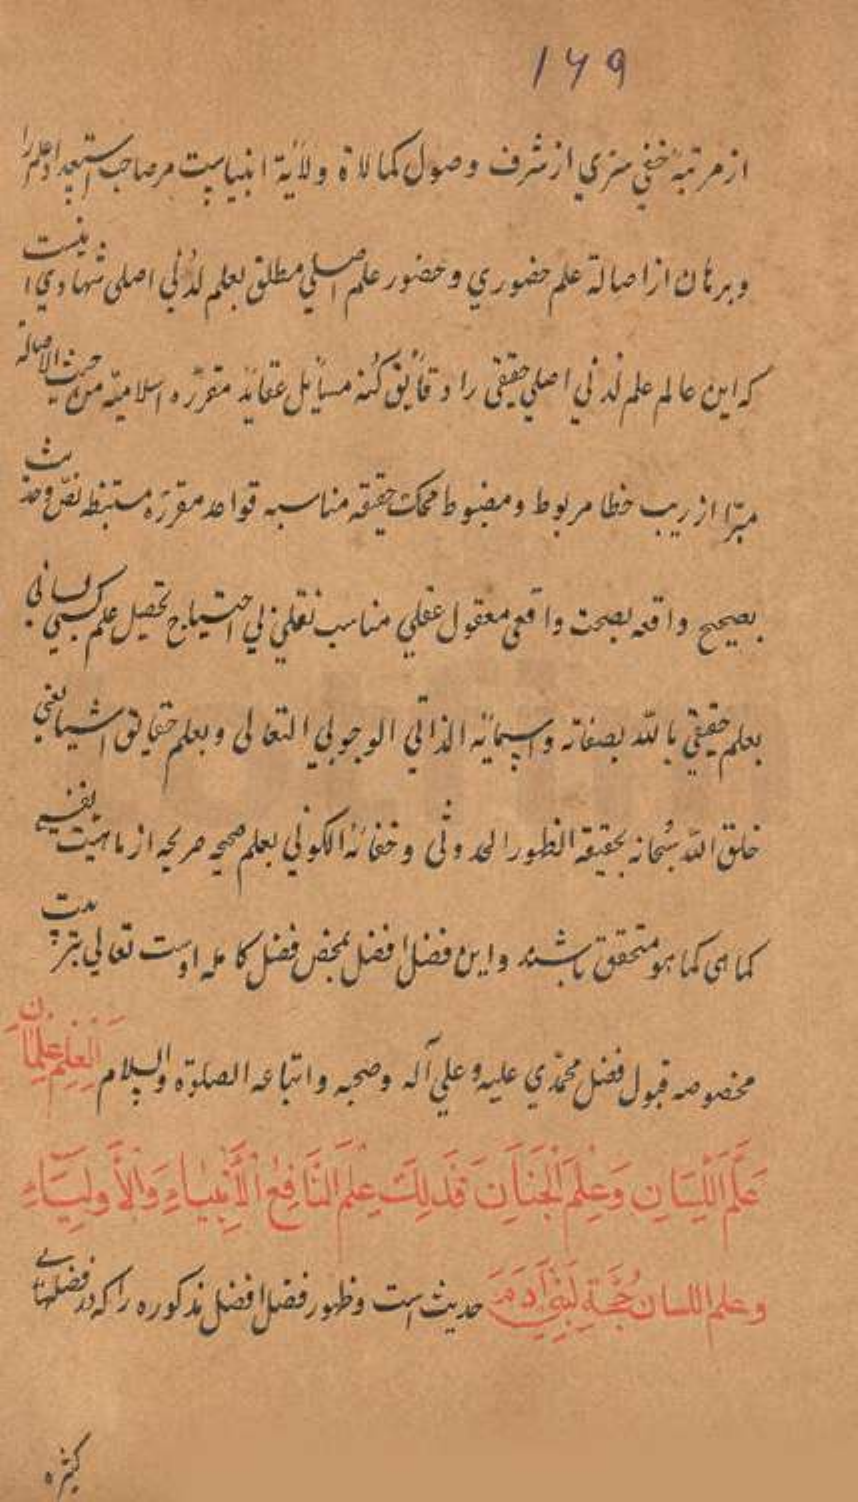 ۱۶۹
از مرتبهٔ خفی سری از شرف وصول کمالاة ولایة انبیاست مر صاحب استعداد علم را
و برهان از اصالة علم حضوری و حضور علم اصلی مطلق بعلم لدنی اصلی شهادی اینست
که این عالم علم لدنی اصلی حقیقی را دقایق کنه مسایل عقاید مقرره اسلامیه من حیث الاصالة
مبرّا از ریب خطا مربوط و مضبوط محک حقیقة مناسبه قواعد مقرره مستنبط نصّ و حدیث
بصحیح واقعه بصحت واقعی معقول عقلی مناسب نقلی بی احتیاج تحصیل علم کسبی لسانی
بعلم حقیقی بالله بصفاته و اسمائه الذاتی الوجوبی التعالی و بعلم حقایق اشیا یعنی
خلق الله سبحانه بحقیقة الظهور الحدوثی و خفائه الکونی بعلم صحیحه صریحه از ماهیت نفسیه
کماهی کما هو متحقق باشند و این فضل افضل بمحض فضل کامله اوست تعالی بتربیت
مخصوصه قبول فضل محمّدی علیه و علی آله وصحبه و اتباعه الصلوة والسلام اَلعِلمُ عِلمَانِ
عِلمُ اللِّسَانِ وَعِلمُ الجَنَانِ فَذَلِكَ عِلمُ النَّافِعُ الأَنبِيَاءِ وَالأَولِيَاءِ
وعلم اللسان حُجَّةِ لَبَنِي آدَمَ حدیث است و ظهور فضل افضل مذکوره را که در فضلهای
کثیره